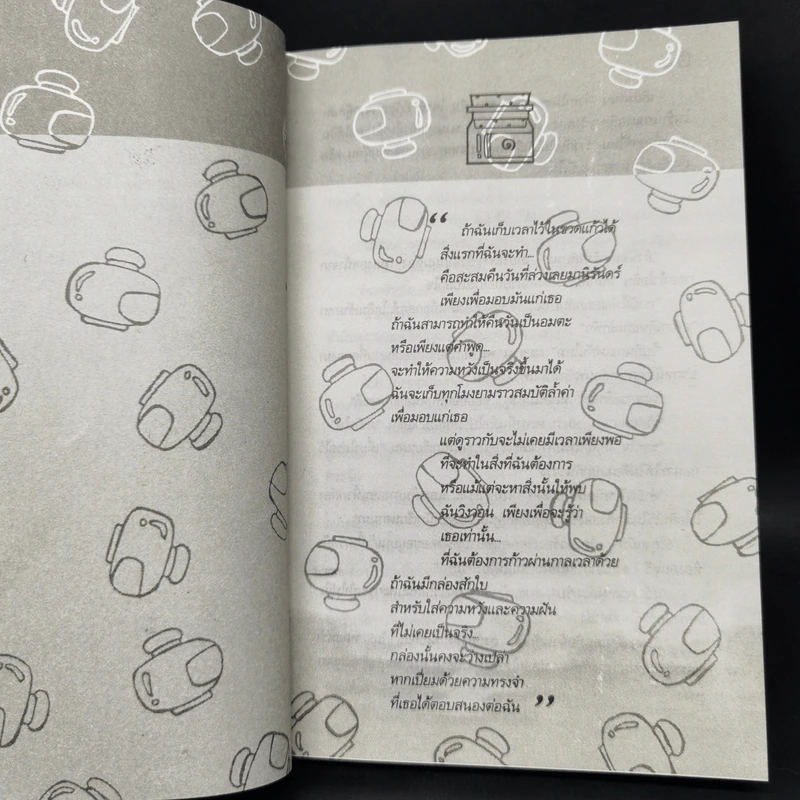 ๑
“ ถ้าฉันเก็บเวลาไว้ในขวดแก้วได้
สิ่งแรกที่ฉันจะทำ...
คือสะสมคืนวันที่ล่วงเลยมานิรันดร์
เพียงเพื่อมอบมันแก่เธอ
ถ้าฉันสามารถทำให้คืนวันเป็นอมตะ
หรือเพียงแต่คำพูด...
จะทำให้ความหวังเป็นจริงขึ้นมาได้
ฉันจะเก็บทุกโมงยามราวสมบัติล้ำค่า
เพื่อมอบแก่เธอ
แต่ดูราวกับจะไม่เคยมีเวลาเพียงพอ
ที่จะทำในสิ่งที่ฉันต้องการ
หรือแม้แต่จะหาสิ่งนั้นให้พบ
ฉันวิงวอน เพียงเพื่อจะรู้ว่า
เธอเท่านั้น...
ที่ฉันต้องการก้าวผ่านกาลเวลาด้วย
ถ้าฉันมีกล่องสักใบ
สำหรับใส่ความหวังและความฝัน
ที่ไม่เคยเป็นจริง...
กล่องนั้นคงจะว่างเปล่า
หากเปี่ยมด้วยความทรงจำ
ที่เธอได้ตอบสนองต่อฉัน ”